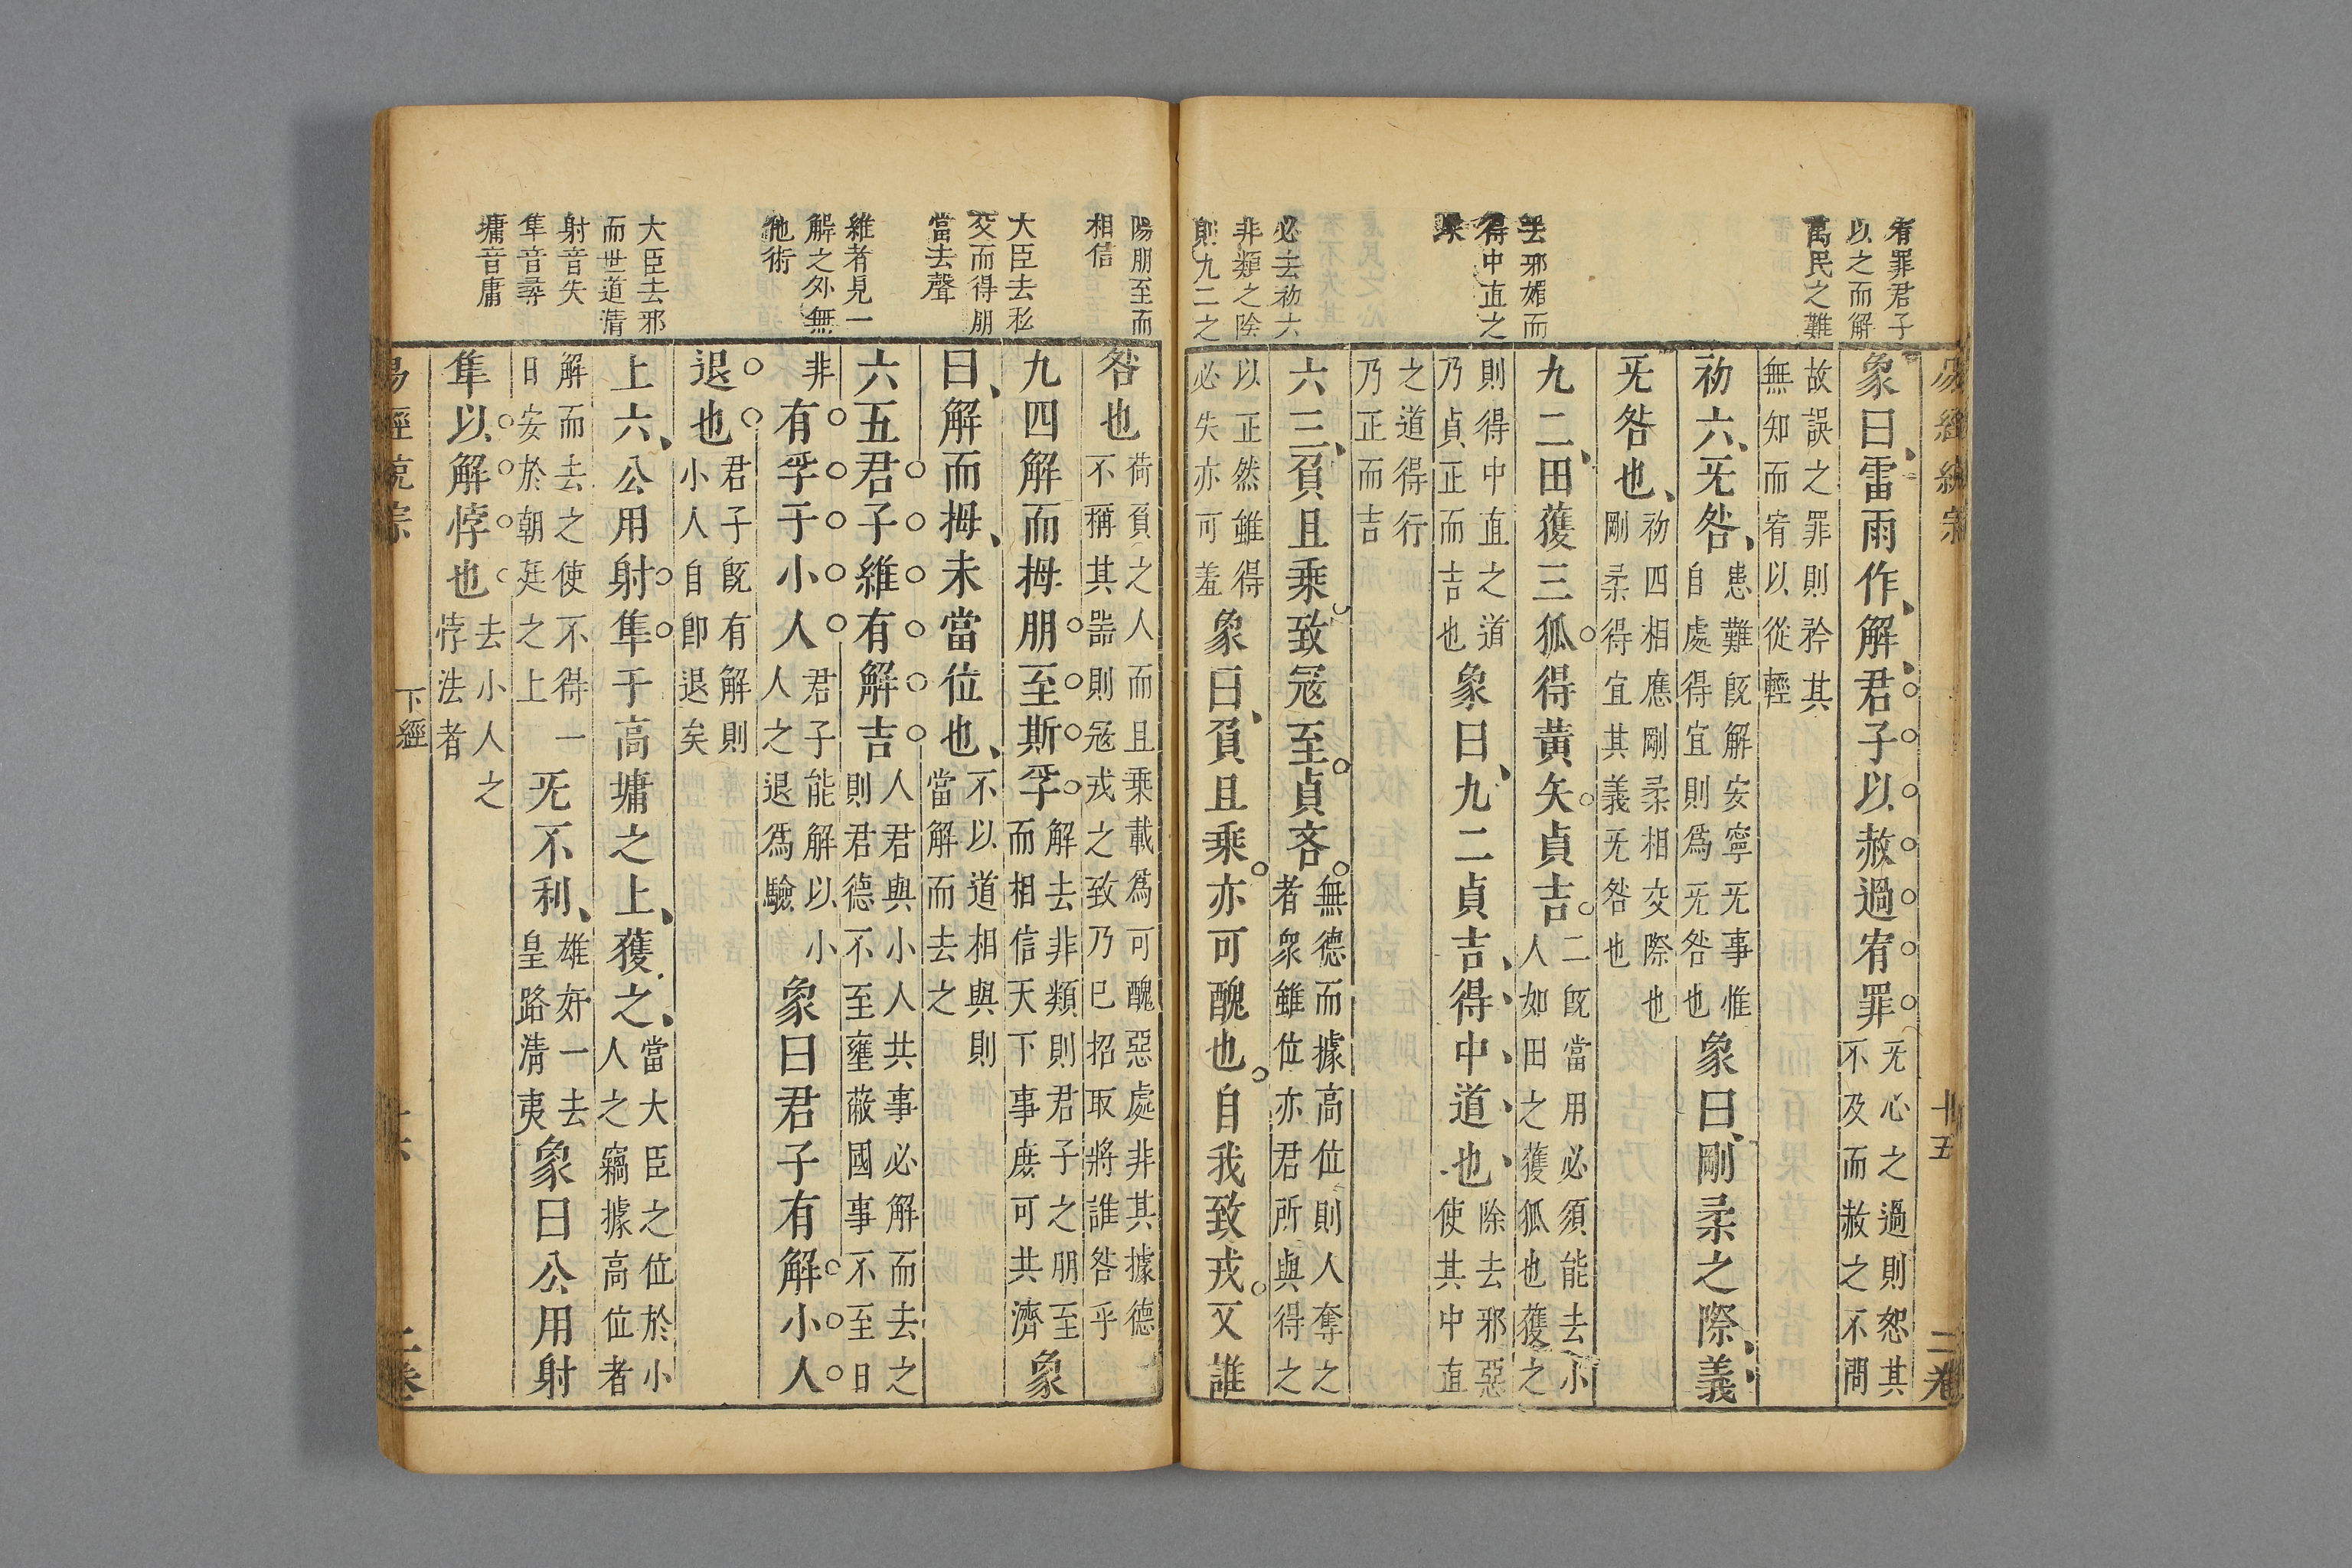 宥罪君子
以之而解
萬民之難
去邪媚而
得中直之
必去初六
非類之陰
則九二之
象曰雷雨作解君子以赦過宥罪
无心之過則恕其
不及而赦之不問
故誤之罪則矜其
無知而宥以從輕
初六无咎
患難既解安寧无事惟
自處得宜則為无咎也
象曰剛柔之際義
无咎也
初四相應剛柔相交際也
剛柔得宜其義无咎也
九二田獲三狐得黃矢貞吉
二既當用必須能去小
人如田之獲狐也獲之
則得中直之道
乃貞正而吉也
象曰九二貞吉得中道也
除去邪惡
使其中直
之道得行
乃正而吉
六三負且乘致寇至貞吝
無德而據高位則人奪之
者衆雖位亦君所與得之
以正然雖得
必失亦可羞
象曰負且乘亦可醜也自我致戎又誰
十五
二卷
陽朋至而
相信
大臣去私
交而得朋
當去聲
維者見一
解之外無
他術
大臣去邪
而世道清
射音失
隼音尋
墉音庸
咎也
荷負之人而且乘載為可醜惡處非其據德
不稱其器則寇戎之致乃已招取將誰咎乎
九四解而拇朋至斯孚
解去非類則君子之朋至
而相信天下事庶可共濟
象
曰解而拇未當位也
不以道相與則
當解而去之
六五君子維有解吉
人君與小人共事必解而去之
則君德不至壅蔽國事不至日
非
有孚于小人
君子能解以小
人之退爲驗
象曰君子有解小人
退也
君子既有解則
小人自卽退矣
上六公用射隼于高墉之上獲之
當大臣之位於小
人之竊據高位者
解而去之使不得一
日安於朝廷之上
无不利
雄奸一去
皇路清夷
象曰公用射
隼以解悖也
去小人之
悖法者
下經